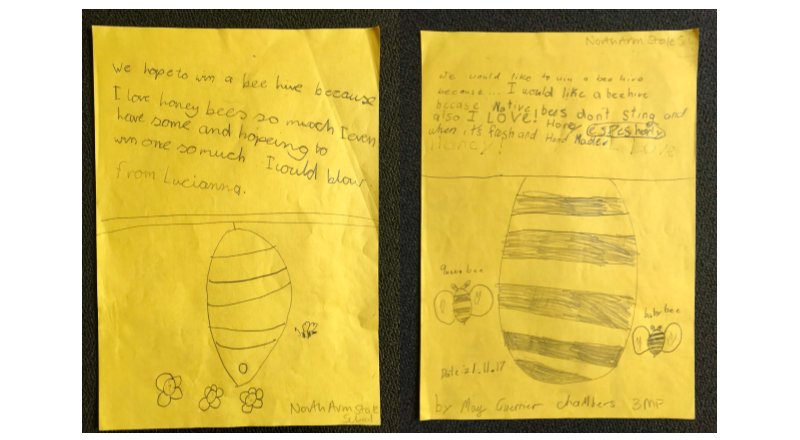 We hope to win a bee hive because
I love honey bees so much I even
have some and hopeing to
win one so much I would blow
from Lucianna.
North Arm State
School
North Arm State S
We would like to win a bee hive
because... I would like a beehive
becase Native bees don't sting and
also I LOVE! Honey espeshally
when it's fresh and Hand Made
I LOVE
Honey!
queen bee
baby bee
Date: 21.11.17
by May Chambers 3MP